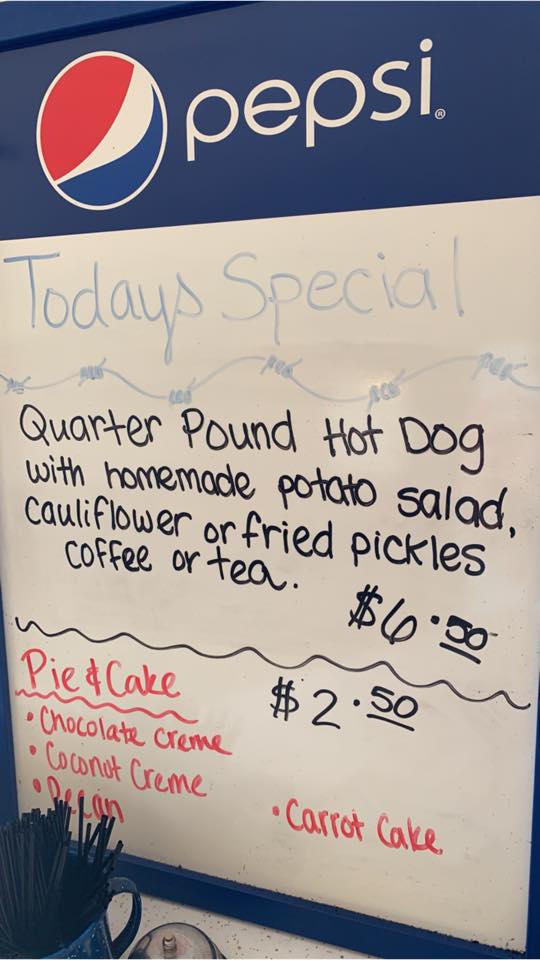 pepsi®
Todays Special
Quarter Pound Hot Dog
with homemade potato salad,
cauliflower or fried pickles
coffee or tea.
$6.50
Pie & Cake
$2.50
• Chocolate Creme
• Coconut Creme
• Pecan
• Carrot Cake